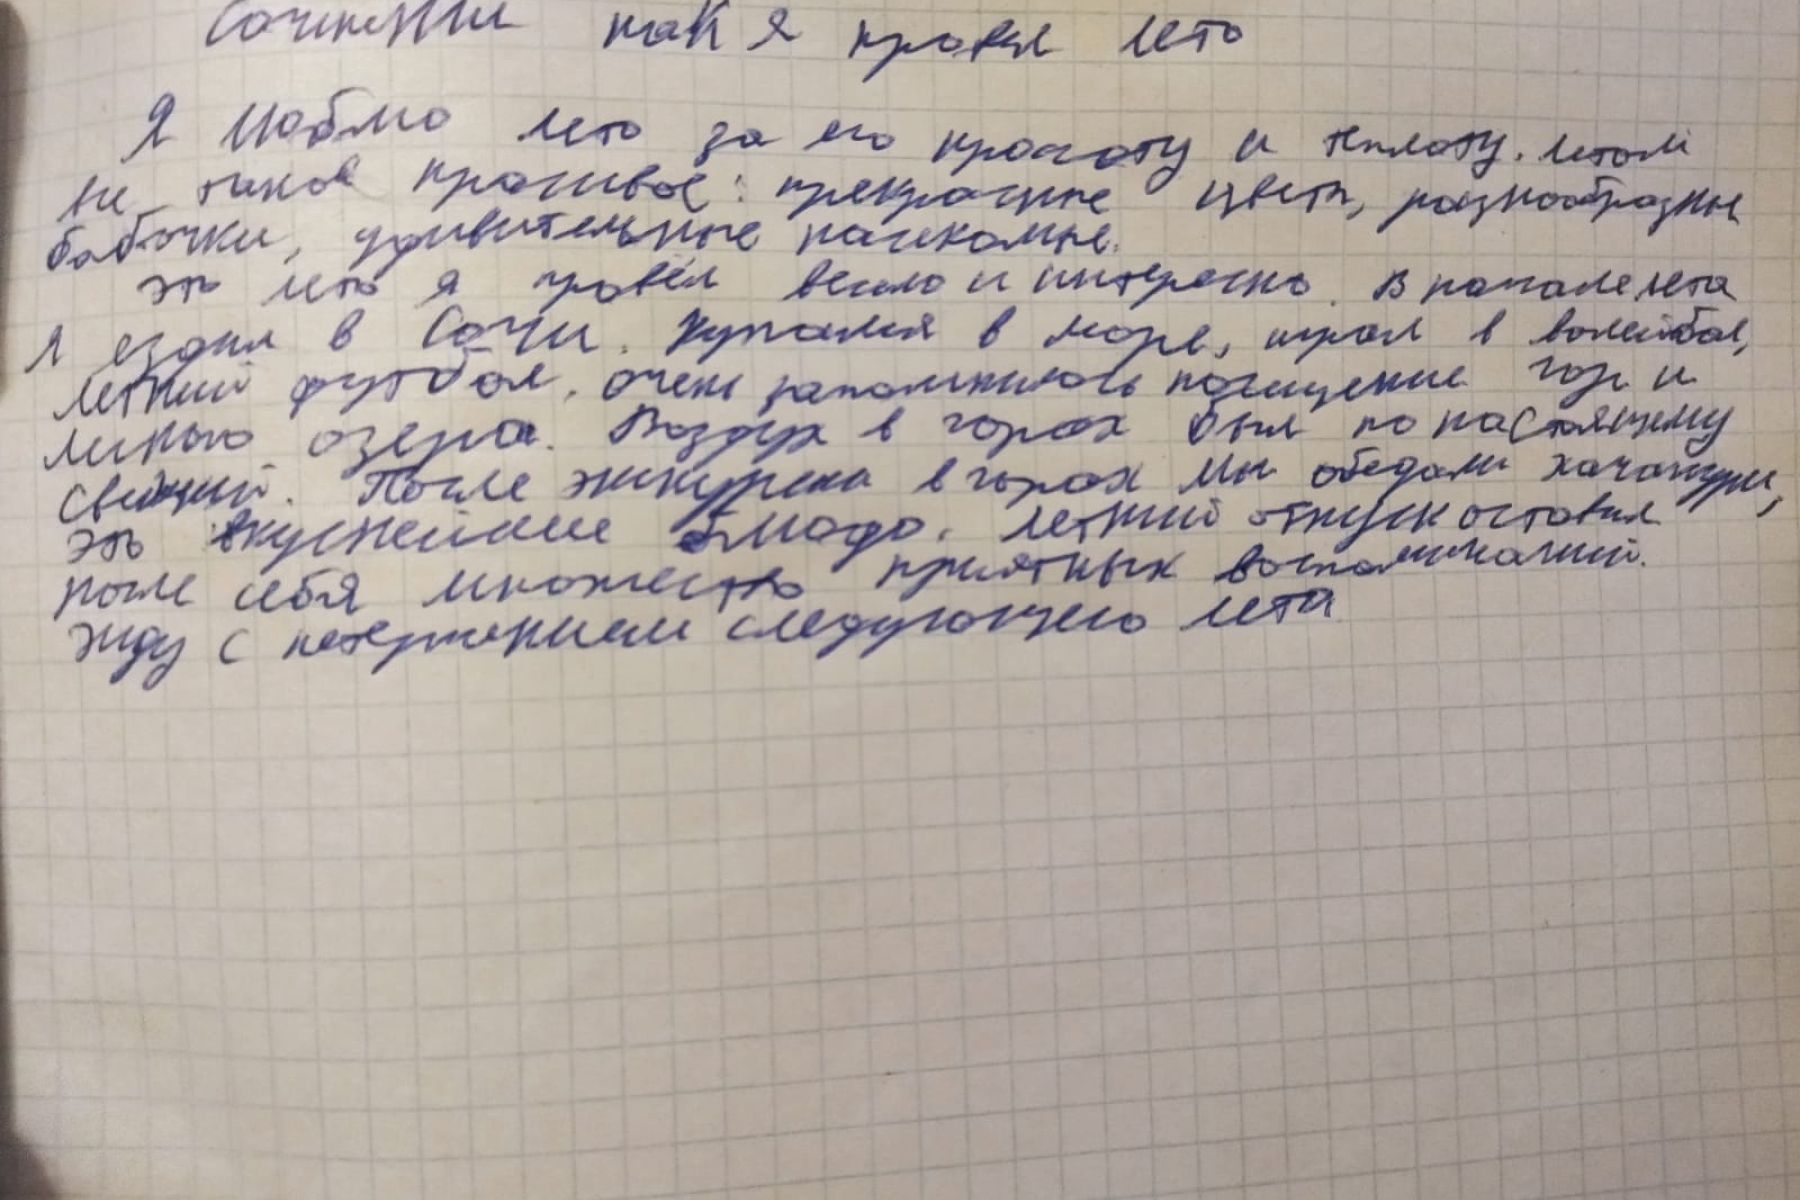 Сочинение как я провел лето
Я люблю лето за его красоту и теплоту. летом
не такое красивое: прекрасные цветы, разнообразные
бабочки, удивительные насекомые.
это лето я провёл весело и интересно. В начале лета
я ездил в Сочи. Купался в море, играл в волейбол,
летний футбол. очень запомнилось посещение гор и
озера. Воздух в горах был по настоящему
свежий. После экскурсии в горах мы обедали хачапури,
это вкуснейшее блюдо. летний отпуск оставил
после себя множество приятных воспоминаний.
жду с нетерпением следующего лета